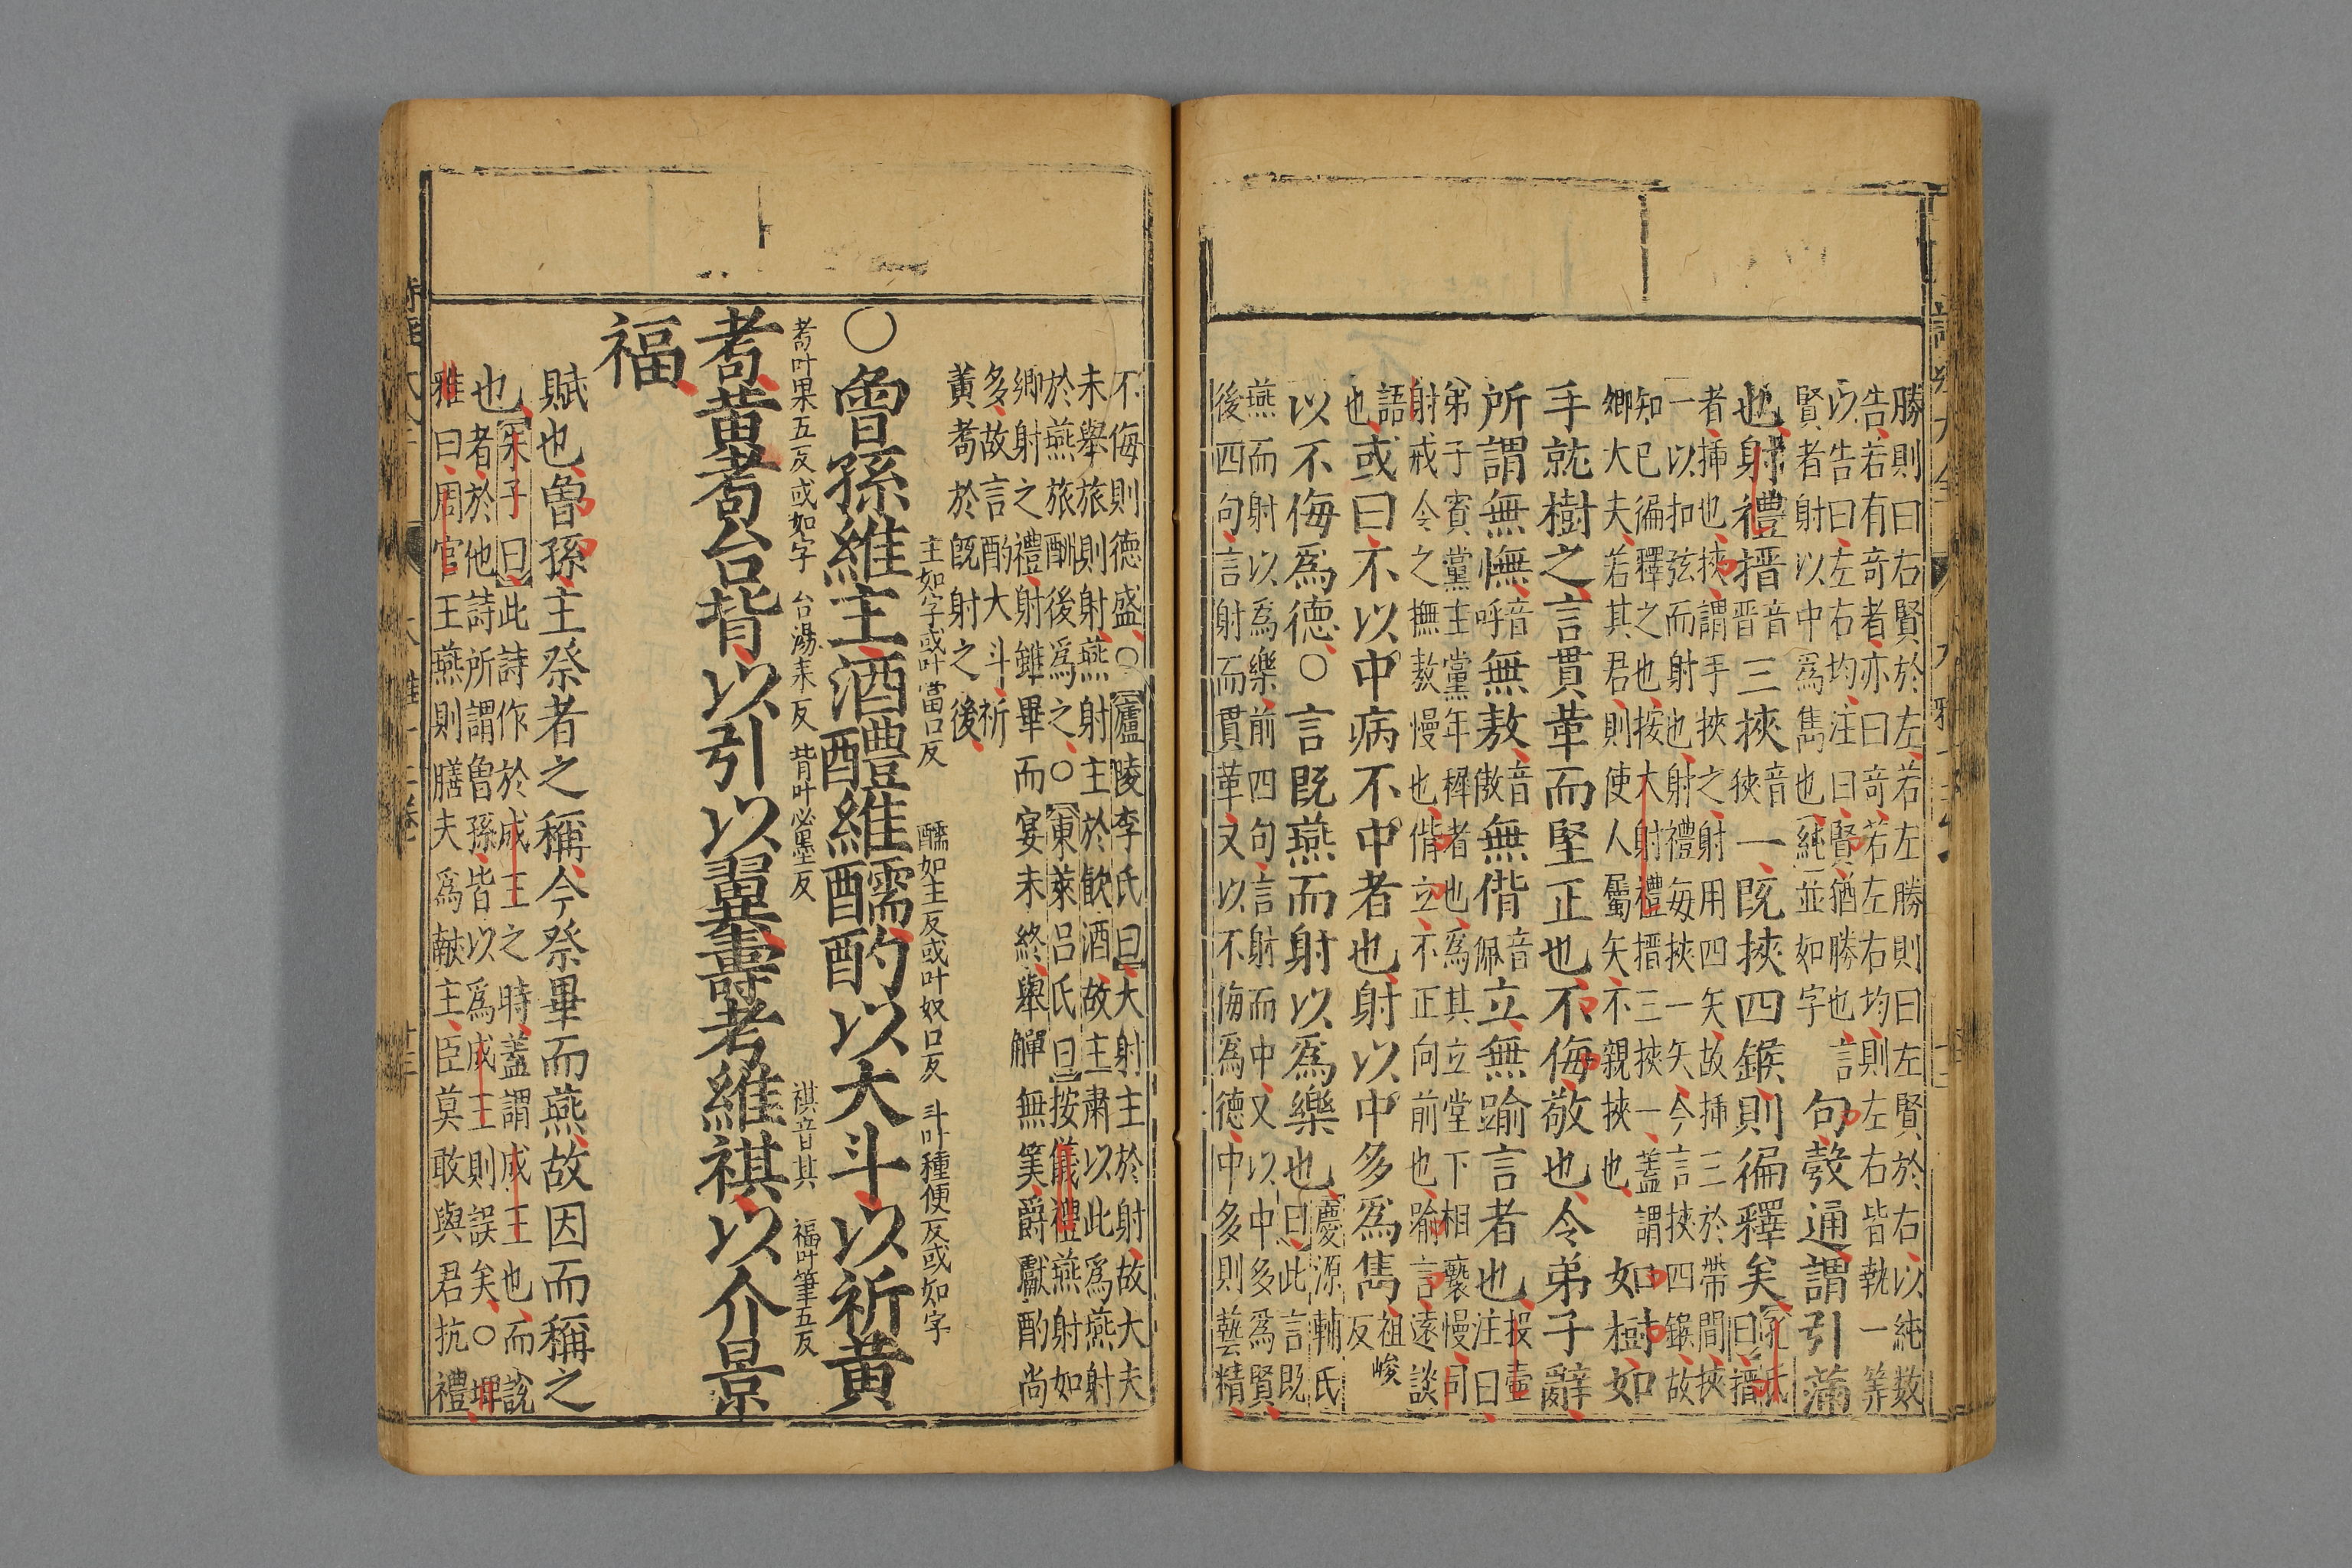 勝則曰右賢於左若左勝則曰左賢於右以純數
告若有奇者亦曰奇若左右均則左右皆執一筭
以告曰左右均注曰賢猶勝也言
賢者射以中爲雋也純並如字
句彀通謂引滿
也射禮搢三挾一既挾四鍭則徧釋矣
音晉
音狹
孔氏曰搢
者揷也挾謂手挾之射用四矢故揷三於帶間挾
一以扣弦而射也射禮每挾一矢今言挾四鍭故
知已徧釋之也按大射禮搢三挾一蓋謂
卿大夫若其君則使人屬矢不親挾也
如樹如
手就樹之言貫革而堅正也不侮敬也令弟子辭
所謂無憮無敖無偝立無踰言者也
音呼
音傲
音佩
投壺注曰
弟子賓黨主黨年穉者也爲其立堂下相褻慢司
射戒令之撫敖慢也偝立不正向前也踰言遠談
語也
或曰不以中病不中者也射以中多爲雋
祖峻反
以不侮爲德○言既燕而射以爲樂也
慶源輔氏曰此言既
燕而射以爲樂前四句言射而中又以中多爲賢
後四句言射而貫革又以不侮爲德中多則藝精
不侮則德盛○廬陵李氏曰大射主於射故大夫
未舉旅則射燕射主於飲酒故主肅以此爲燕射
於燕旅酬後爲之○東萊呂氏曰按儀禮燕射如
卿射之禮射雖畢而宴未終舉觶無筭爵獻酌尚
多故言酌大斗祈
黃耇於既射之後
○曾孫維主酒醴維醹酌以大斗以祈黃
主如字或叶當口反
醹如主反或叶奴口反
斗叶種便反或如字
耇黃耇台背以引以翼壽考維祺以介景
耇叶果五反或如字
台湯來反
背叶必墨反
祺音其
福叶筆五反
福
賦也魯孫主祭者之稱今祭畢而燕故因而稱之
也朱子曰此詩作於成王之時蓋謂成王也而說
者於他詩所謂魯孫皆以爲成王則誤矣○埤
雅曰周官王燕則膳夫爲獻主臣莫敢與君抗禮